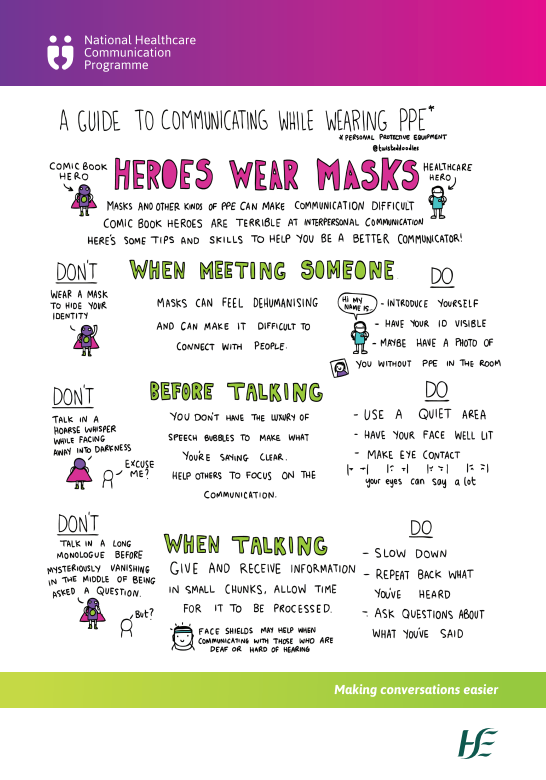 National Healthcare
Communication
Programme
A GUIDE TO COMMUNICATING WHILE WEARING PPE*
*PERSONAL PROTECTIVE EQUIPMENT
@twisteddoodles
COMIC BOOK
HERO
HEROES WEAR MASKS
HEALTHCARE
HERO
MASKS AND OTHER KINDS OF PPE CAN MAKE COMMUNICATION DIFFICULT
COMIC BOOK HEROES ARE TERRIBLE AT INTERPERSONAL COMMUNICATION
HERE'S SOME TIPS AND SKILLS TO HELP YOU BE A BETTER COMMUNICATOR!
DON'T
WEAR A MASK
TO HIDE YOUR
IDENTITY
WHEN MEETING SOMEONE
MASKS CAN FEEL DEHUMANISING
AND CAN MAKE IT DIFFICULT TO
CONNECT WITH PEOPLE.
DO
HI MY
NAME IS..
- INTRODUCE YOURSELF
- HAVE YOUR ID VISIBLE
- MAYBE HAVE A PHOTO OF
YOU WITHOUT PPE IN THE ROOM
DON'T
TALK IN A
HOARSE WHISPER
WHILE FACING
AWAY INTO DARKNESS
EXCUSE
ME?
BEFORE TALKING
YOU DON'T HAVE THE LUXURY OF
SPEECH BUBBLES TO MAKE WHAT
YOU'RE SAYING CLEAR.
HELP OTHERS TO FOCUS ON THE
COMMUNICATION.
DO
- USE A QUIET AREA
- HAVE YOUR FACE WELL LIT
- MAKE EYE CONTACT
your eyes can say a lot
DON'T
TALK IN A LONG
MONOLOGUE BEFORE
MYSTERIOUSLY VANISHING
IN THE MIDDLE OF BEING
ASKED A QUESTION.
But?
WHEN TALKING
GIVE AND RECEIVE INFORMATION
IN SMALL CHUNKS, ALLOW TIME
FOR IT TO BE PROCESSED.
FACE SHIELDS MAY HELP WHEN
COMMUNICATING WITH THOSE WHO ARE
DEAF OR HARD OF HEARING
DO
- SLOW DOWN
- REPEAT BACK WHAT
YOU'VE HEARD
- ASK QUESTIONS ABOUT
WHAT YOU'VE SAID
Making conversations easier
HSE